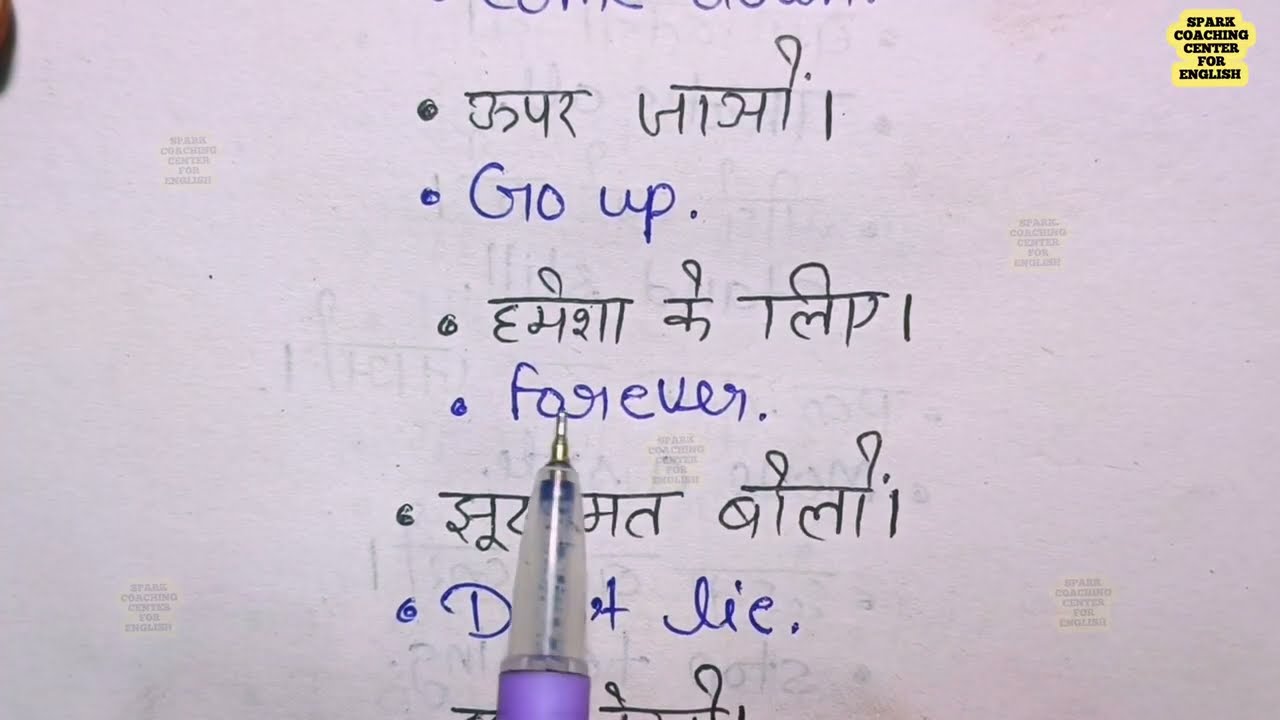 SPARK
COACHING
CENTER
FOR
ENGLISH
• ऊपर जाओं।
• Go up.
• हमेशा के लिए।
• forever.
• मत बोलों।
• lie.
SPARK
COACHING
CENTER
FOR
ENGLISH
SPARK
COACHING
CENTER
FOR
ENGLISH
SPARK
COACHING
CENTER
FOR
ENGLISH
SPARK
COACHING
CENTER
FOR
ENGLISH
SPARK
COACHING
CENTER
FOR
ENGLISH